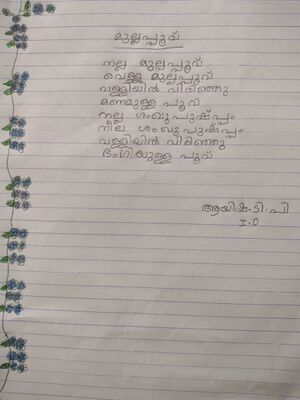 മുല്ലപ്പൂവ്
നല്ല മുല്ലപ്പൂവ്
വെള്ള മുല്ലപ്പൂവ്
വള്ളിയിൽ വിരിഞ്ഞു
മണമുള്ള പൂവ്
നല്ല ശംഖുപുഷ്പ്പം
നീല ശംഖുപുഷ്പ്പം
വള്ളിയിൽ വിരിഞ്ഞു
ഭംഗിയുള്ള പൂവ്
ആയിഷ.ടി.പി
I.D